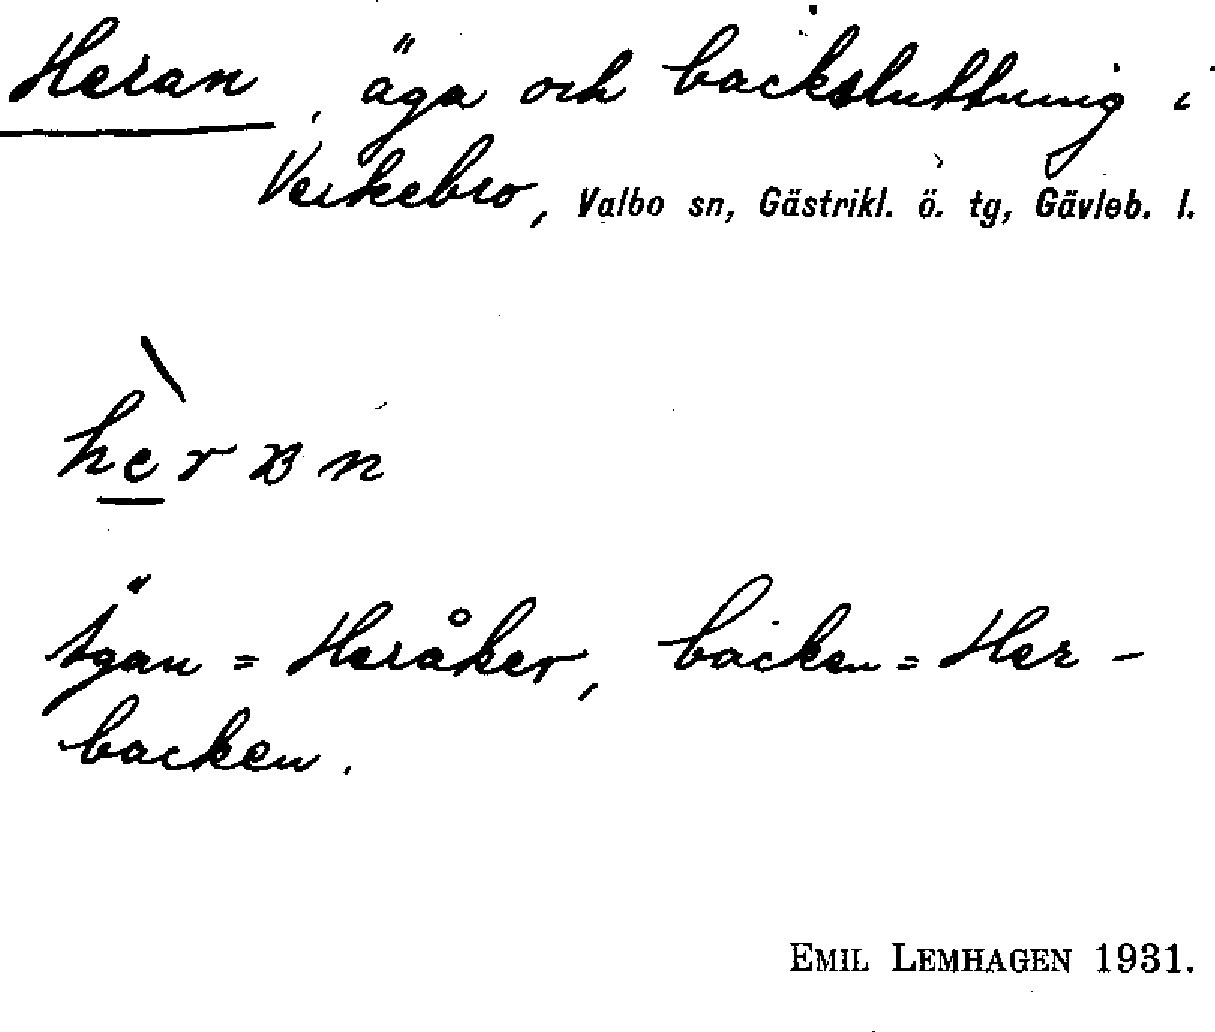 Heran, äga och backsluttning i
Verkebro, Valbo sn, Gästrikl. ö. tg, Gävleb. l.
hèrɐn
Ägan = Heråker, backen = Her-
backen.
EMIL LEMHAGEN 1931.